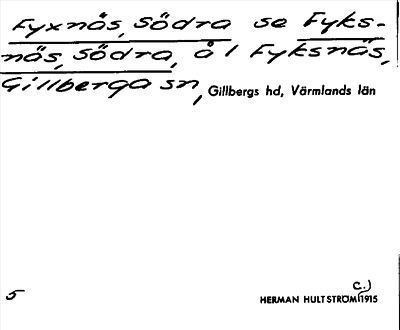 Fyxnäs, Södra se Fyks-
näs, Södra, å l Fyksnäs,
Gillberga sn, Gillbergs hd, Värmlands län
5
c.)
HERMAN HULTSTRÖM 1915